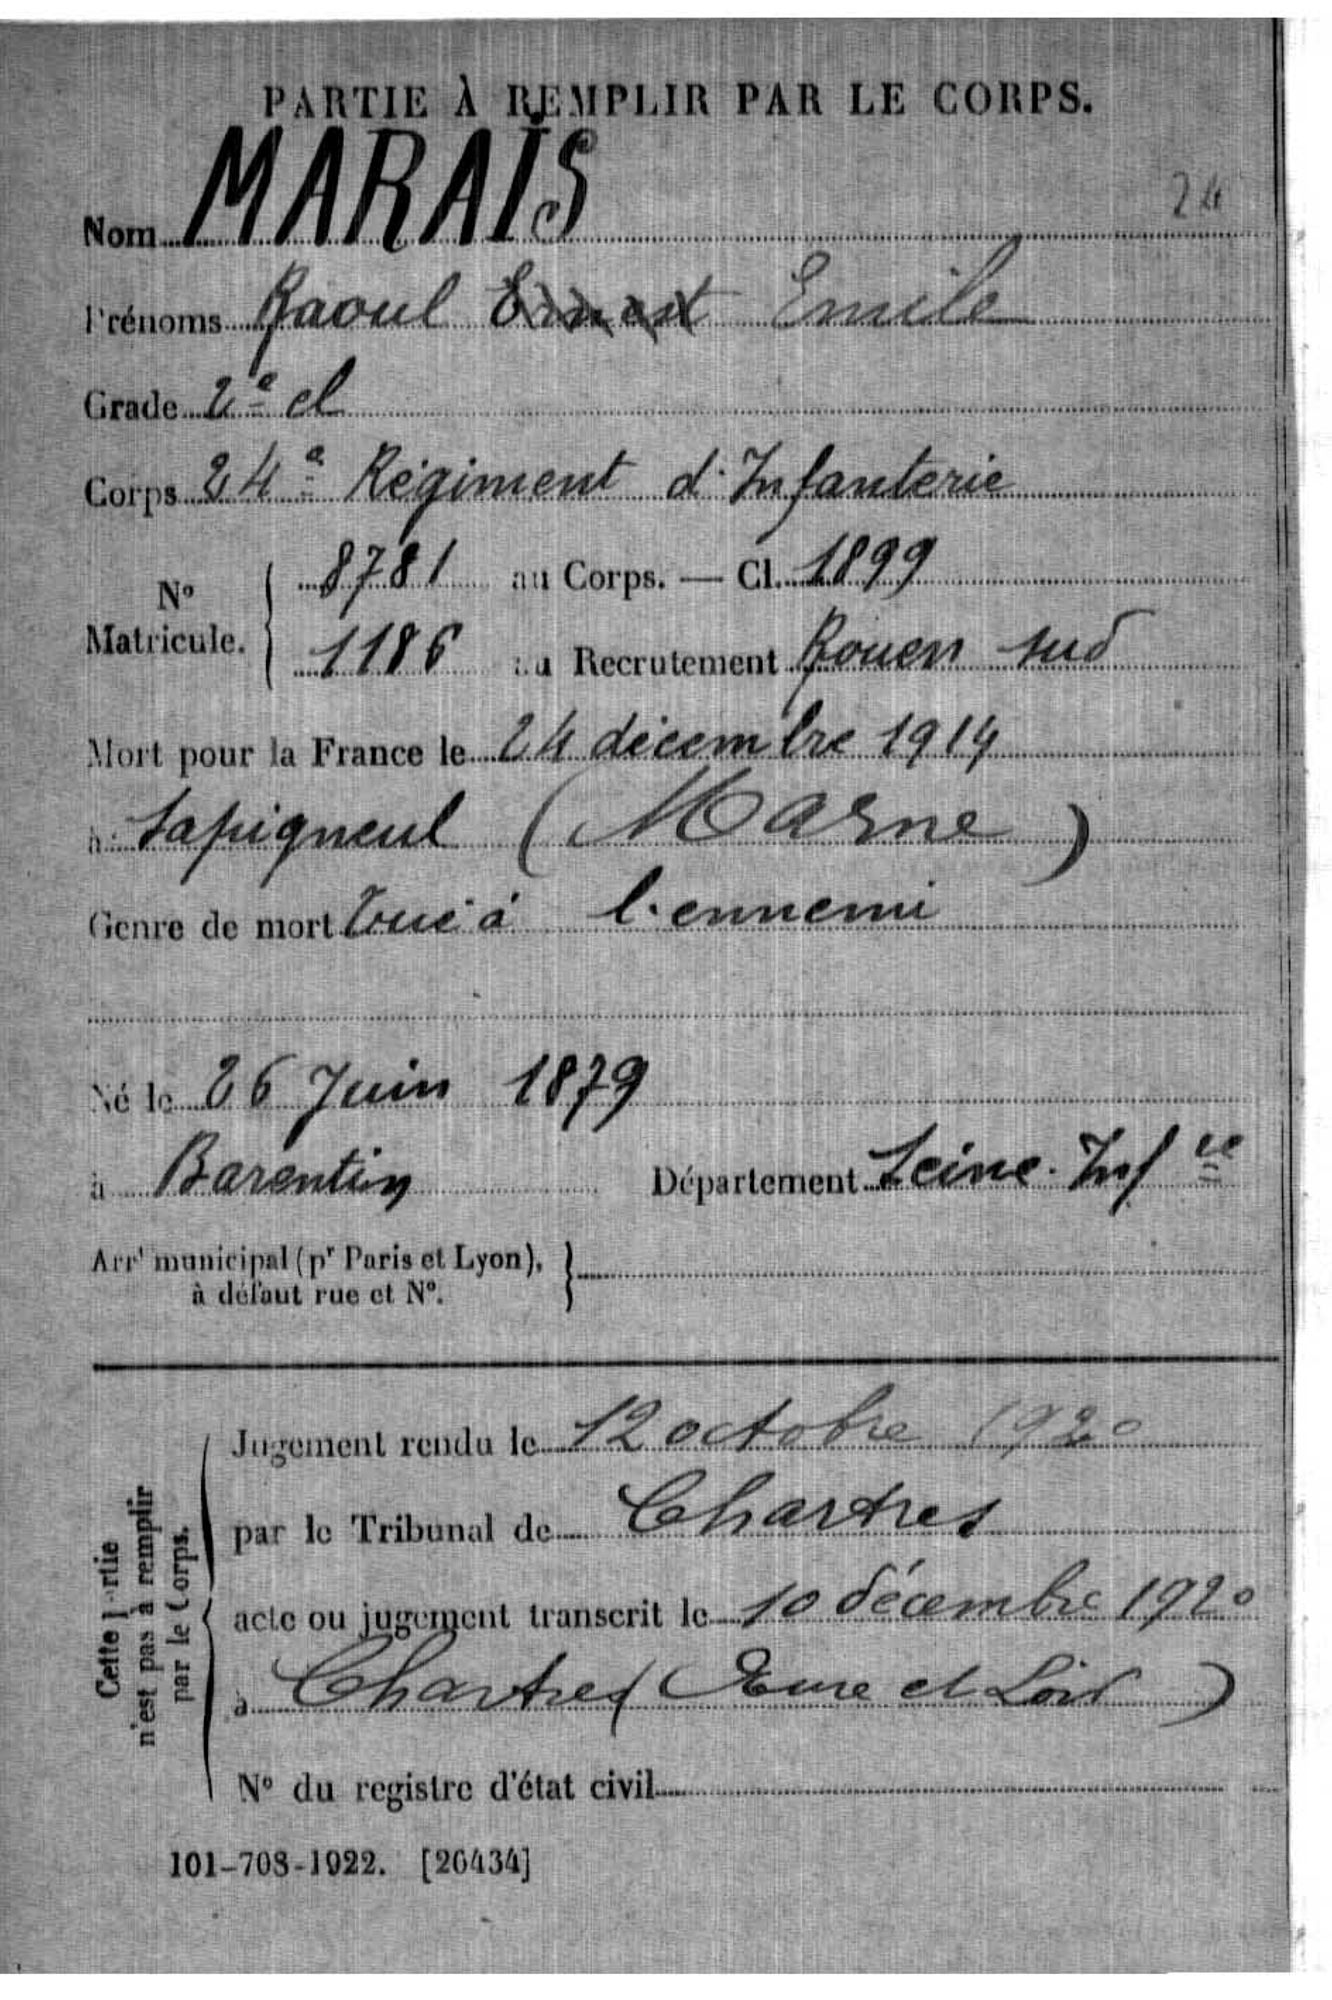 PARTIE À REMPLIR PAR LE CORPS.
Nom MARAIS
24
Prénoms Raoul Ernest Emile
Grade 2e cl
Corps 24e Régiment d'Infanterie
No Matricule. 8781 au Corps. — Cl. 1899
1186 au Recrutement Rouen sud
Mort pour la France le 24 décembre 1914
à Sapigneul (Marne)
Genre de mort Tué à l'ennemi
Né le 26 Juin 1879
à Barentin Département Seine-Infre
Arrt municipal (pr Paris et Lyon),
à défaut rue et No.
Cette partie
n'est pas à remplir
par le Corps.
Jugement rendu le 12 octobre 1920
par le Tribunal de Chartres
acte ou jugement transcrit le 10 décembre 1920
à Chartres (Eure et Loir)
No du registre d'état civil
101-708-1922. [26434]